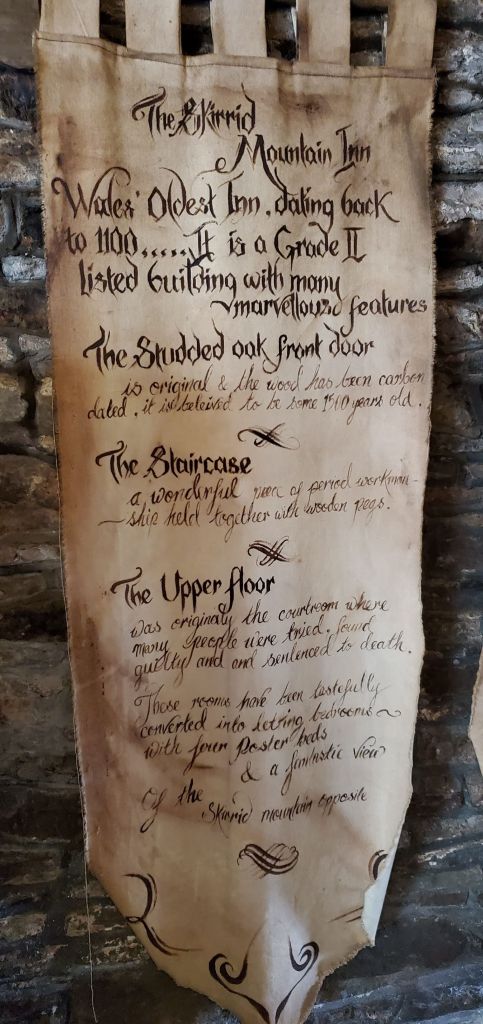 The Skirrid
Mountain Inn
Wales' Oldest Inn. dating back
to 1100..... It is a Grade II
listed building with many
marvellous features
The Studded oak front door
is original & the wood has been carbon
dated. it is beleived to be some 1500 years old.
The Staircase
a wonderful peen of period workman-
-ship held together with wooden pegs.
The Upper floor
was originaly the courtroom where
many people were tried. found
guilty and and sentenced to death.
These rooms have been tastefully
converted into letting bedrooms
with four Poster beds
& a fantastic view
Of the Skirrid mountain opposite